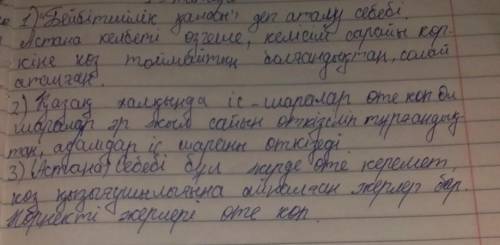 1) "Бейбітшілік қаласы" деп аталу себебі.
Астана келбеті өзгеше, кемсің сарайы көр-
кіне көз тоймайтын болғандықтан, солай
аталған.
2) Қазақ халқында іс-шаралар өте көп. Ол
шаралар әр жыл сайын өткізіліп тұрғандық
тан, адамдар іс шараны өткізеді.
3) (Астана) себебі бұл жерде өте керемет,
көз қызығушылығына айналған жерлер бар.
Көрнекті жерлері өте көп.